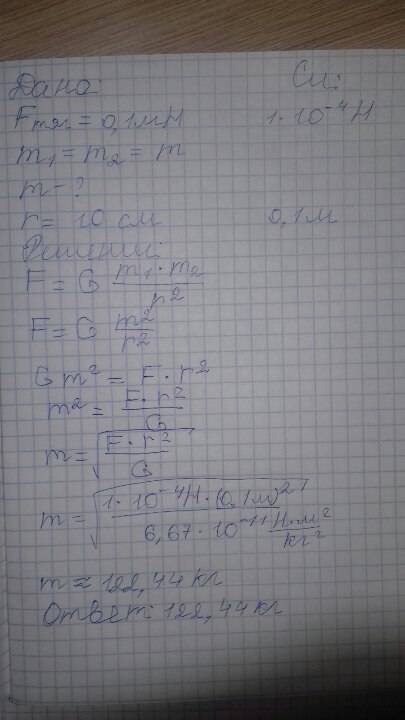 Дано: Си:
Fтяг = 0,1мН 1·10⁻⁴Н
m₁ = m₂ = m
m - ?
r = 10 см 0,1м
Решение:
F = G m₁·m₂/r²
F = G m²/r²
G m² = F·r²
m² = F·r²/G
m = √(F·r²/G)
m = √(1·10⁻⁴Н·(0,1м)²/6,67·10⁻¹¹ Н·м²/кг²)
m ≈ 122,44 кг
Ответ: 122,44 кг